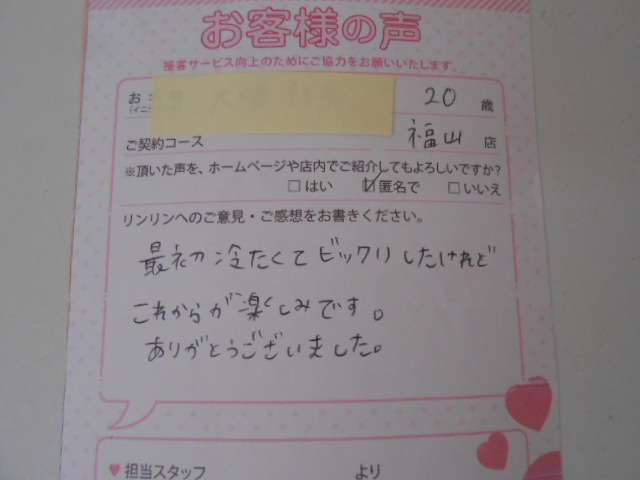 お客様の声
接客サービス向上のためにご協力をお願いいたします。
20 歳
ご契約コース
福山 店
※頂いた声を、ホームページや店内でご紹介してもよろしいですか?
□はい ☑匿名で □いいえ
リンリンへのご意見・ご感想をお書きください。
最初冷たくてビックリしたけれど
これからが楽しみです。
ありがとうございました。
♥担当スタッフ より